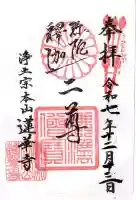 奉拝
令和七年十二月三日
釈迦
弥陀
二尊
浄土宗本山蓮華寺